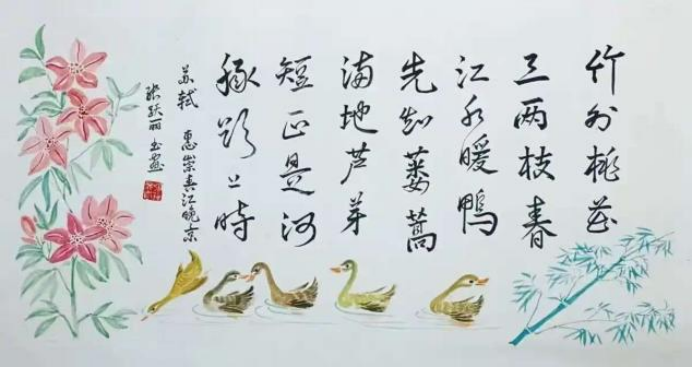 竹外桃花
三两枝春
江水暖鸭
先知蒌蒿
满地芦芽
短正是河
豚欲上时
苏轼 惠崇春江晚景
张跃丽书画